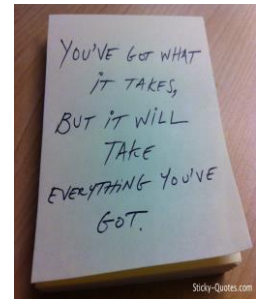 YOU'VE GOT WHAT
iT TAKES,
BUT iT WiLL
TAKE
EVERYTHiNG YOU'VE
GOT.
Sticky-Quotes.com